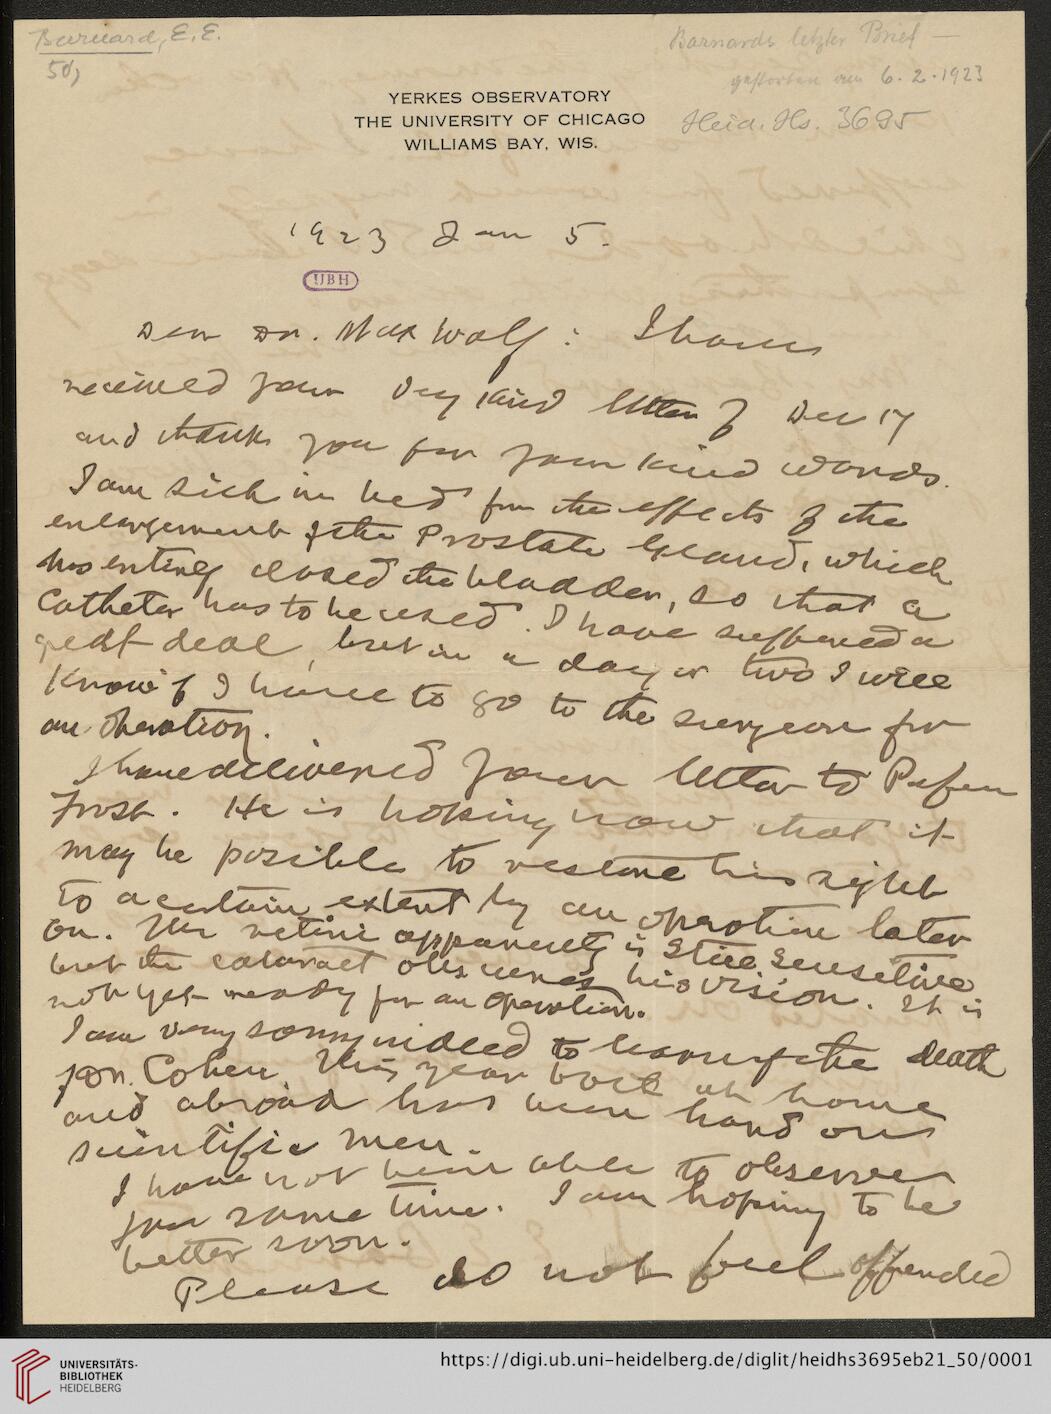 Barnard, E. E.
50,
Barnards letzter Brief —
gestorben am 6. 2. 1923
Heid. Hs. 3695
YERKES OBSERVATORY
THE UNIVERSITY OF CHICAGO
WILLIAMS BAY, WIS.
1923 Jan 5.
UBH
Dear Dr. Max Wolf: I have
received your very kind letter of Dec 17
and thank you for your kind words.
I am sick in bed from the effects of the
enlargement of the Prostate Gland, which
has entirely closed the bladder, so that a
Catheter has to be used. I have suffered a
great deal, but in a day or two I will
Know if I have to go to the surgeon for
an operation.
I have delivered your letter to Professor
Frost. He is hoping now that it
may be possible to restore his sight
to a certain extent by an operation later
on. The retina apparently is still sensitive
but the cataract obscures his vision. It is
not yet ready for an operation.
I am very sorry indeed to learn of the death
of Dr. Cohen. This year both at home
and abroad has been hard on
scientific men.
I have not been able to observe
for some time. I am hoping to be
better soon.
Please do not feel offended
UNIVERSITÄTS-
BIBLIOTHEK
HEIDELBERG
https://digi.ub.uni-heidelberg.de/diglit/heidhs3695eb21_50/0001